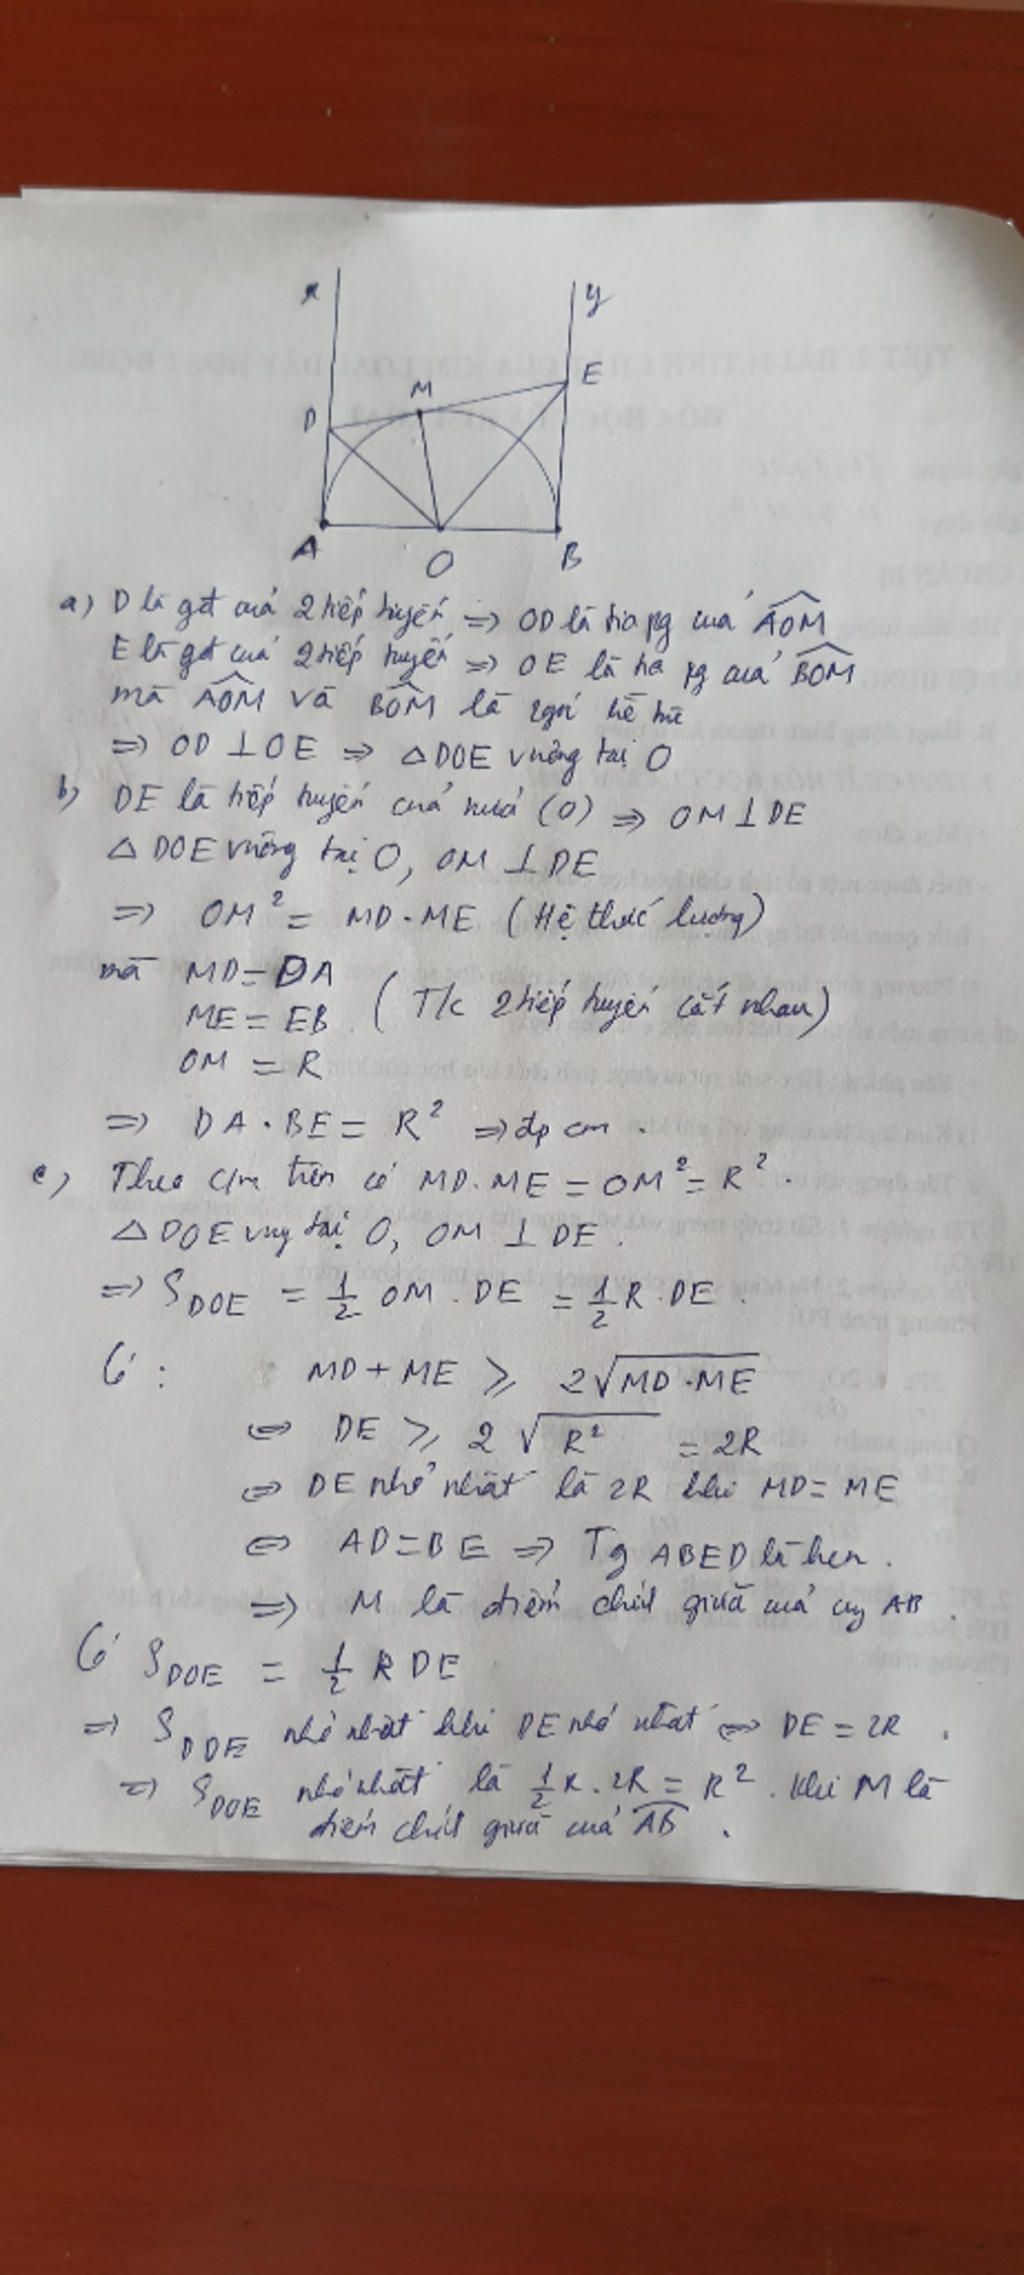 x
y
E
M
D
A
O
B
a) D là gđ của 2 tiếp tuyến => OD là tia pg của AOM
E là gđ của 2 tiếp tuyến => OE là tia pg của BOM
mà AOM và BOM là 2góc kề bù
=> OD ⊥ OE => △DOE vuông tại O
b) DE là tiếp tuyến của nửa (O) => OM ⊥ DE
△ DOE vuông tại O, OM ⊥ DE
=> OM² = MD . ME (Hệ thức lượng)
mà MD = DA
ME = EB (T/c 2 tiếp tuyến cắt nhau)
OM = R
=> DA . BE = R² => đpcm .
c) Theo c/m trên có MD.ME = OM² = R² .
△ DOE vug tại O, OM ⊥ DE .
=> S DOE = 1/2 OM . DE = 1/2 R . DE .
Có : MD + ME ≥ 2√MD.ME
<=> DE ≥ 2 √R² = 2R
<=> DE nhỏ nhất là 2R khi MD = ME
<=> AD = BE => Tg ABED là hcn .
=> M là điểm chính giữa của cung AB .
Có S DOE = 1/2 R DE
=> S DOE nhỏ nhất khi DE nhỏ nhất <=> DE = 2R .
=> S DOE nhỏ nhất là 1/2 R . 2R = R² . khi M là
điểm chính giữa của AB .